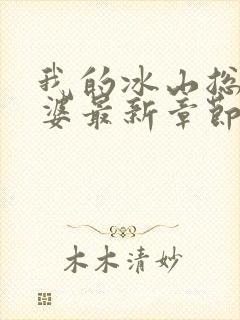 我的冰山总
婆最新章节
木木清妙